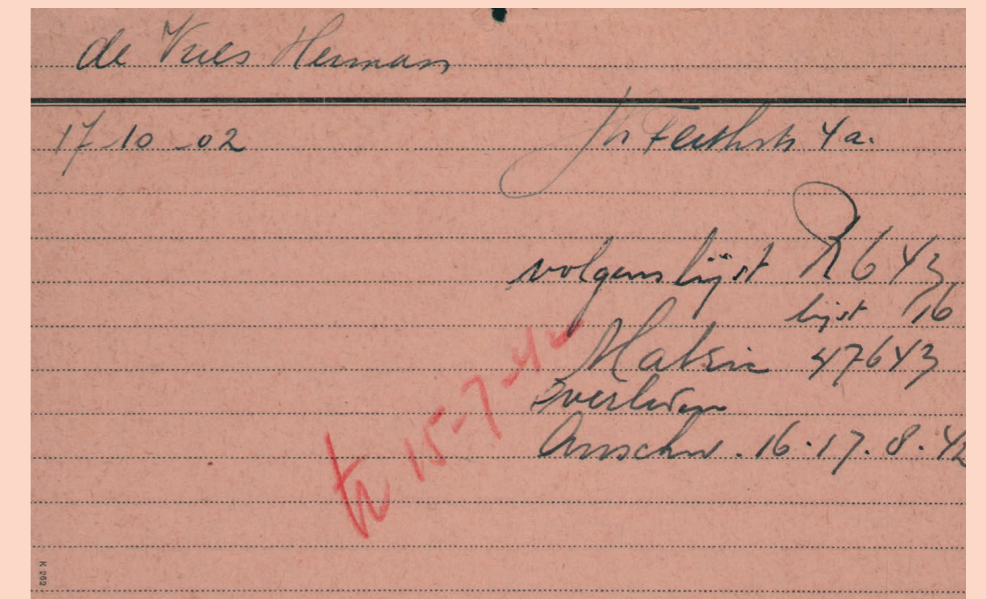 de Vries Herman
17-10-02
Jh Feithstr 4a.
volgens lijst R 643
lijst 16
Matric 47643
overleden
Auschw. 16-17.8.42
tr 15-7-42
K 262